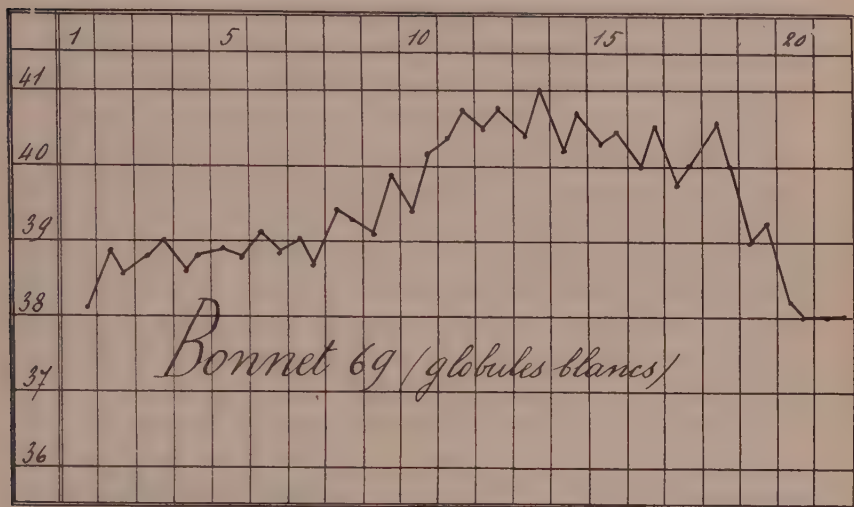 1 5 10 15 20
41
40
39
38
Bonnet 69 (globules blancs)
37
36